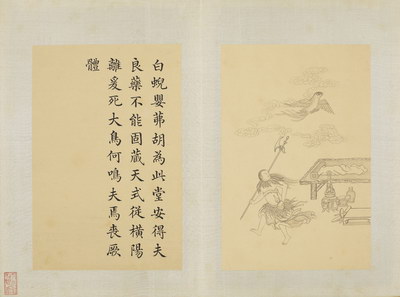 白蜺嬰茀胡為此堂安得夫
良藥不能固臧天式從橫陽
離爰死大鳥何鳴夫焉喪厥
體